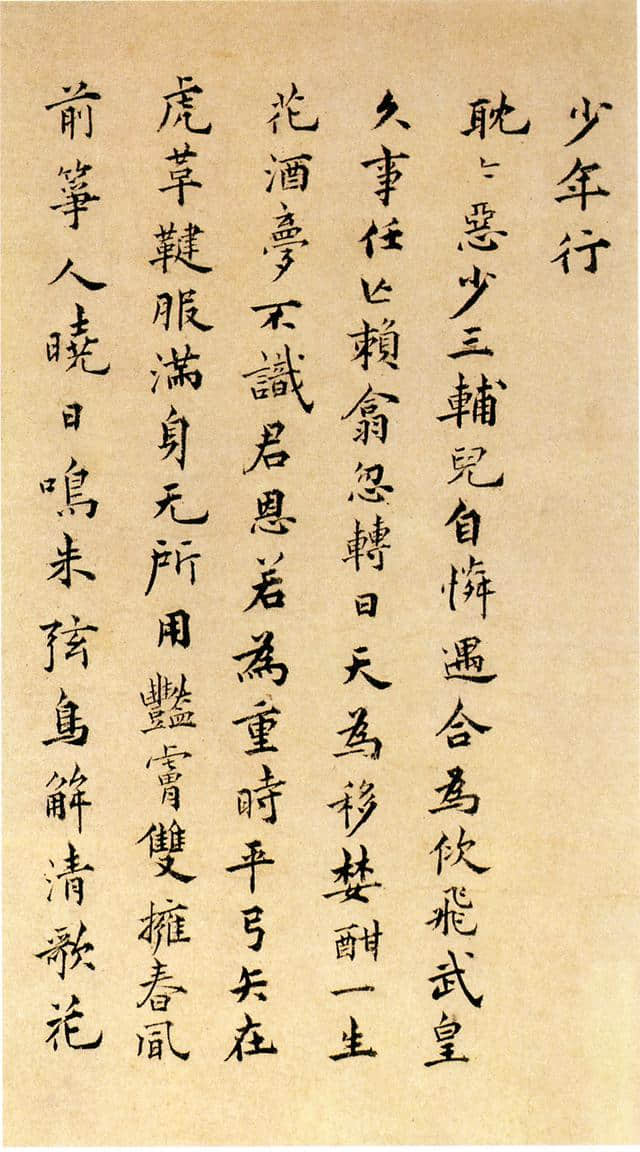 少年行
耽〻惡少三輔兒自憐遇合為佽飛武皇
久事任亡賴翕忽轉日天為移婪酣一生
花酒夢不識君恩若為重時平弓矢在
虎革鞬服滿身无所用豔膚雙擁春風
前箏人曉日鳴朱弦鳥解清歌花